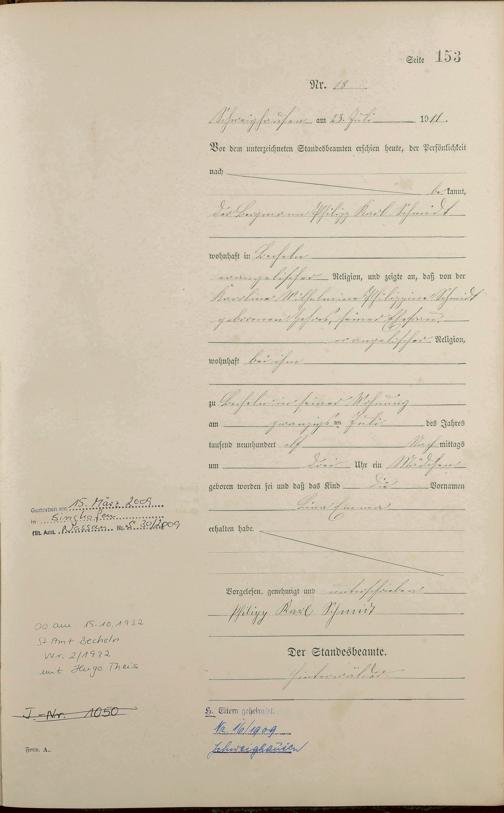 Seite 153
Nr. 18
Schweighausen am 23. Juli 1911.
Vor dem unterzeichneten Standesbeamten erschien heute, der Persönlichkeit
nach
be kannt,
der Bergmann Philipp Karl Schmidt
wohnhaft in Becheln
evangelischer Religion, und zeigte an, daß von der
Karoline Wilhelmine Philippine Schmidt
geborenen seiner Ehefrau
evangelischer Religion,
wohnhaft bei ihm
zu Becheln in seiner Wohnung
am zwanzigsten Juli des Jahres
tausend neunhundert elf Nach mittags
um drei Uhr ein Mädchen
geboren worden sei und daß das Kind die Vornamen
Lina Emma
erhalten habe.
Vorgelesen, genehmigt und unterschrieben
Philipp Karl Schmidt
Der Standesbeamte.
Hinterwälder
Gestorben am 15. März 2009
in Singhofen
Nassau Nr. S 20/2009
oo am 15.10.1932
St Amt Becheln
Nr. 2/1932
mit Hugo Theis
J-Nr. 1050
Form. A.
Eltern geheiratet
Nr. 6/1909
Schweighausen